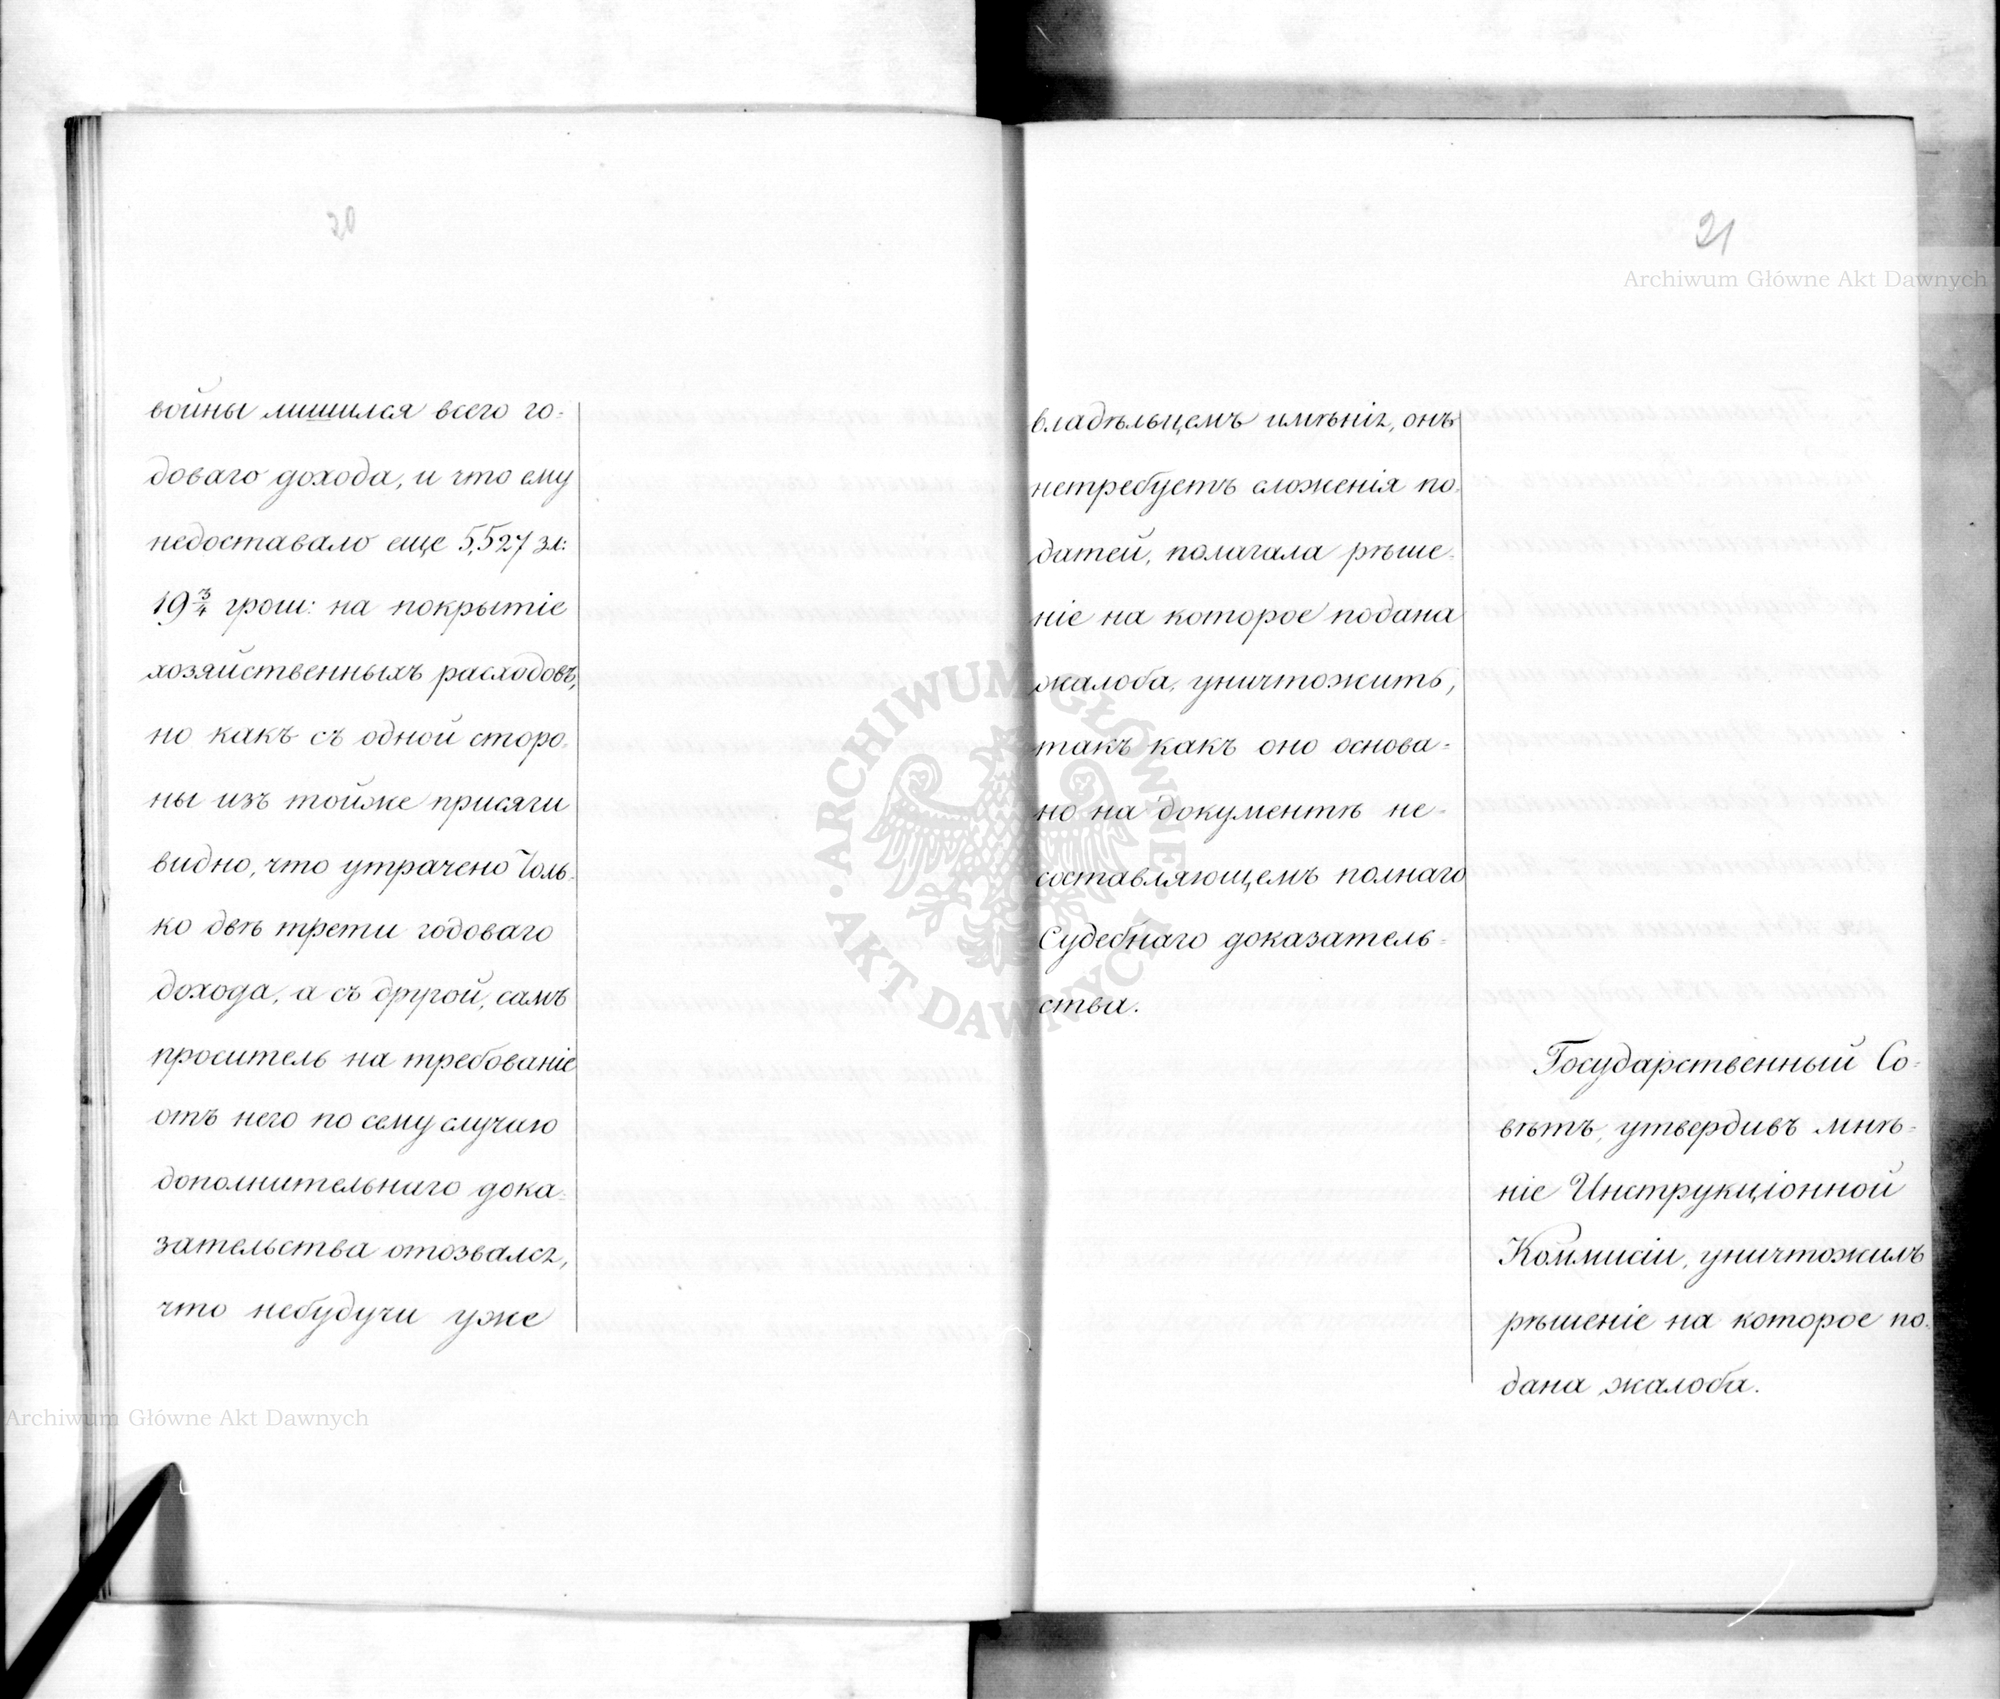 20
войны лишился всего го-
доваго дохода, и что ему
недоставало еще 5,527 зл:
19 3/4 грош: на покрытіе
хозяйственныхъ расходовъ,
но какъ съ одной сторо-
ны изъ тойже присяги
видно, что утрачено толь-
ко двѣ трети годоваго
дохода, а съ другой, самъ
проситель на требованіе
отъ него по сему случаю
дополнительнаго дока-
зательства отозвался,
что небудучи уже
21
Archiwum Główne Akt Dawnych
владѣльцемъ имѣнія, онъ
нетребуетъ сложенія по-
датей, полагала рѣше-
ніе на которое подана
жалоба, уничтожить,
такъ какъ оно основа-
но на документѣ не-
составляющемъ полнаго
Судебнаго доказатель-
ства.
Государственный Со-
вѣтъ, утвердивъ мнѣ-
ніе Инструкціонной
Коммисіи, уничтожилъ
рѣшеніе на которое по-
дана жалоба.
ARCHIWUM GŁÓWNE AKT DAWNYCH
Archiwum Główne Akt Dawnych